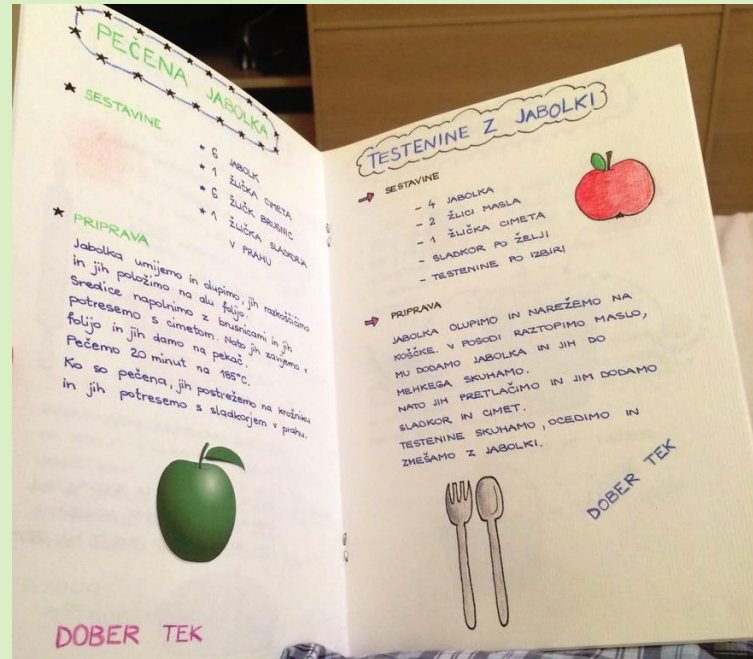 PEČENA JABOLKA
SESTAVINE
* 6 JABOLK
* 1 ŽLIČKA CIMETA
* 6 ŽLIČK BRUSNIC
* 1 ŽLIČKA SLADKORJA
V PRAHU
PRIPRAVA
Jabolka umijemo in olupimo, jih razkoščičimo
in jih položimo na alu folijo.
Sredice napolnimo z brusnicami in jih
potresemo s cimetom. Nato jih zavijemo v
folijo in jih damo na pekač.
Pečemo 20 minut na 185°C.
Ko so pečena, jih postrežemo na krožniku
in jih potresemo s sladkorjem v prahu.
DOBER TEK
TESTENINE Z JABOLKI
SESTAVINE
- 4 JABOLKA
- 2 ŽLICI MASLA
- 1 ŽLIČKA CIMETA
- SLADKOR PO ŽELJI
- TESTENINE PO IZBIRI
PRIPRAVA
JABOLKA OLUPIMO IN NAREŽEMO NA
KOŠČKE. V POSODI RAZTOPIMO MASLO,
MU DODAMO JABOLKA IN JIH DO
MEHKEGA SKUHAMO.
NATO JIH PRETLAČIMO IN JIM DODAMO
SLADKOR IN CIMET.
TESTENINE SKUHAMO, OCEDIMO IN
ZMEŠAMO Z JABOLKI.
DOBER TEK